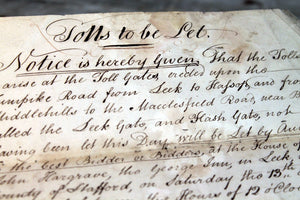 Tolls to be Let.
Notice is hereby Given, That the Tolls
arise at the Toll Gates, erected upon the
Turnpike Road from Leek to Hassop, and from
Middlehills to the Macclesfield Road, near B
called the Leek Gate, and Hash Gate, not
having been let this Day will be Let by Auct
to the best Bidder or Bidders, at the House of
John Hargrave, the George Inn, in Leek,
County of Stafford, on Saturday the 13th
the Hours of 12 o'Clo